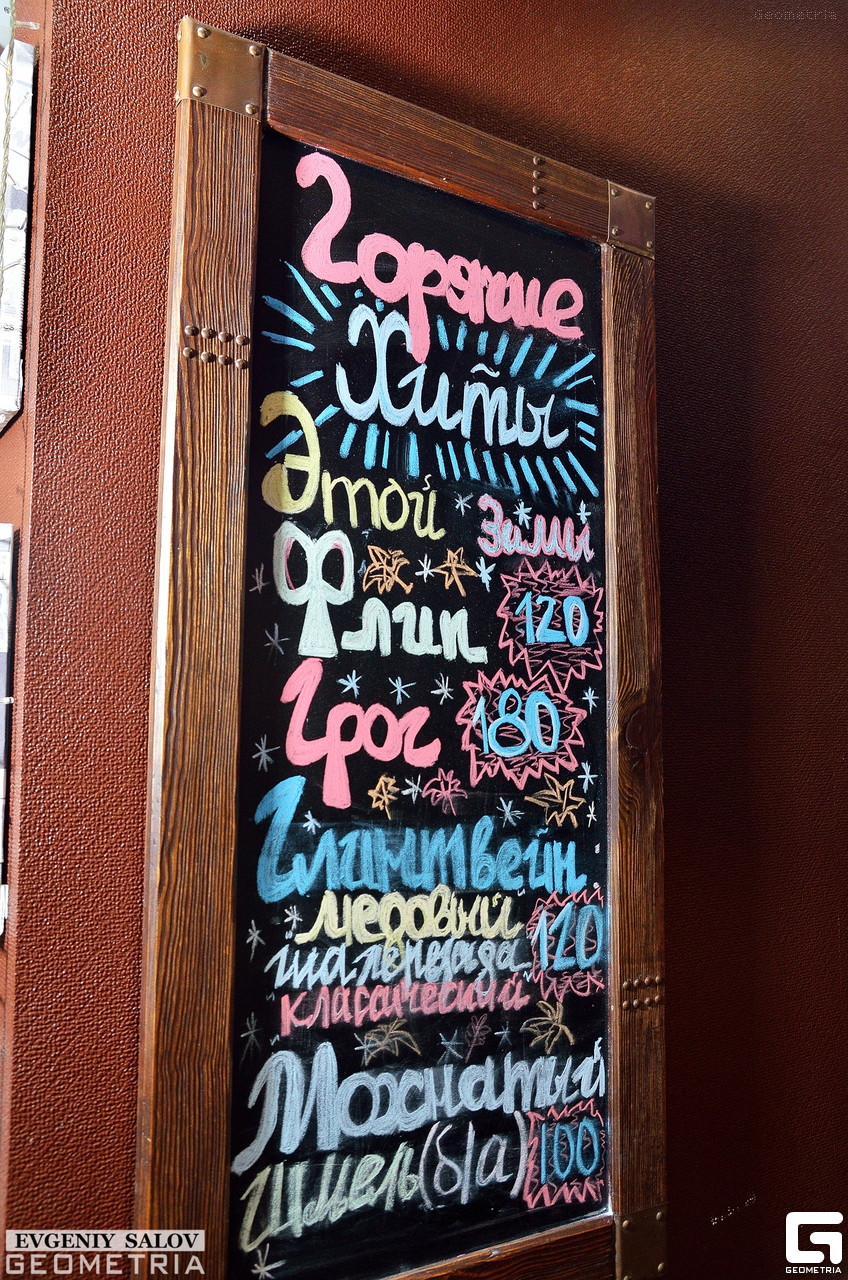 Geometria
Горячие
Хиты
Этой
Зимы
Флип 120
Грог 180
Глинтвейн
медовый
120
классический
Мохнатый
Шмель (б/а) 100
EVGENIY SALOV
GEOMETRIA
G
GEOMETRIA